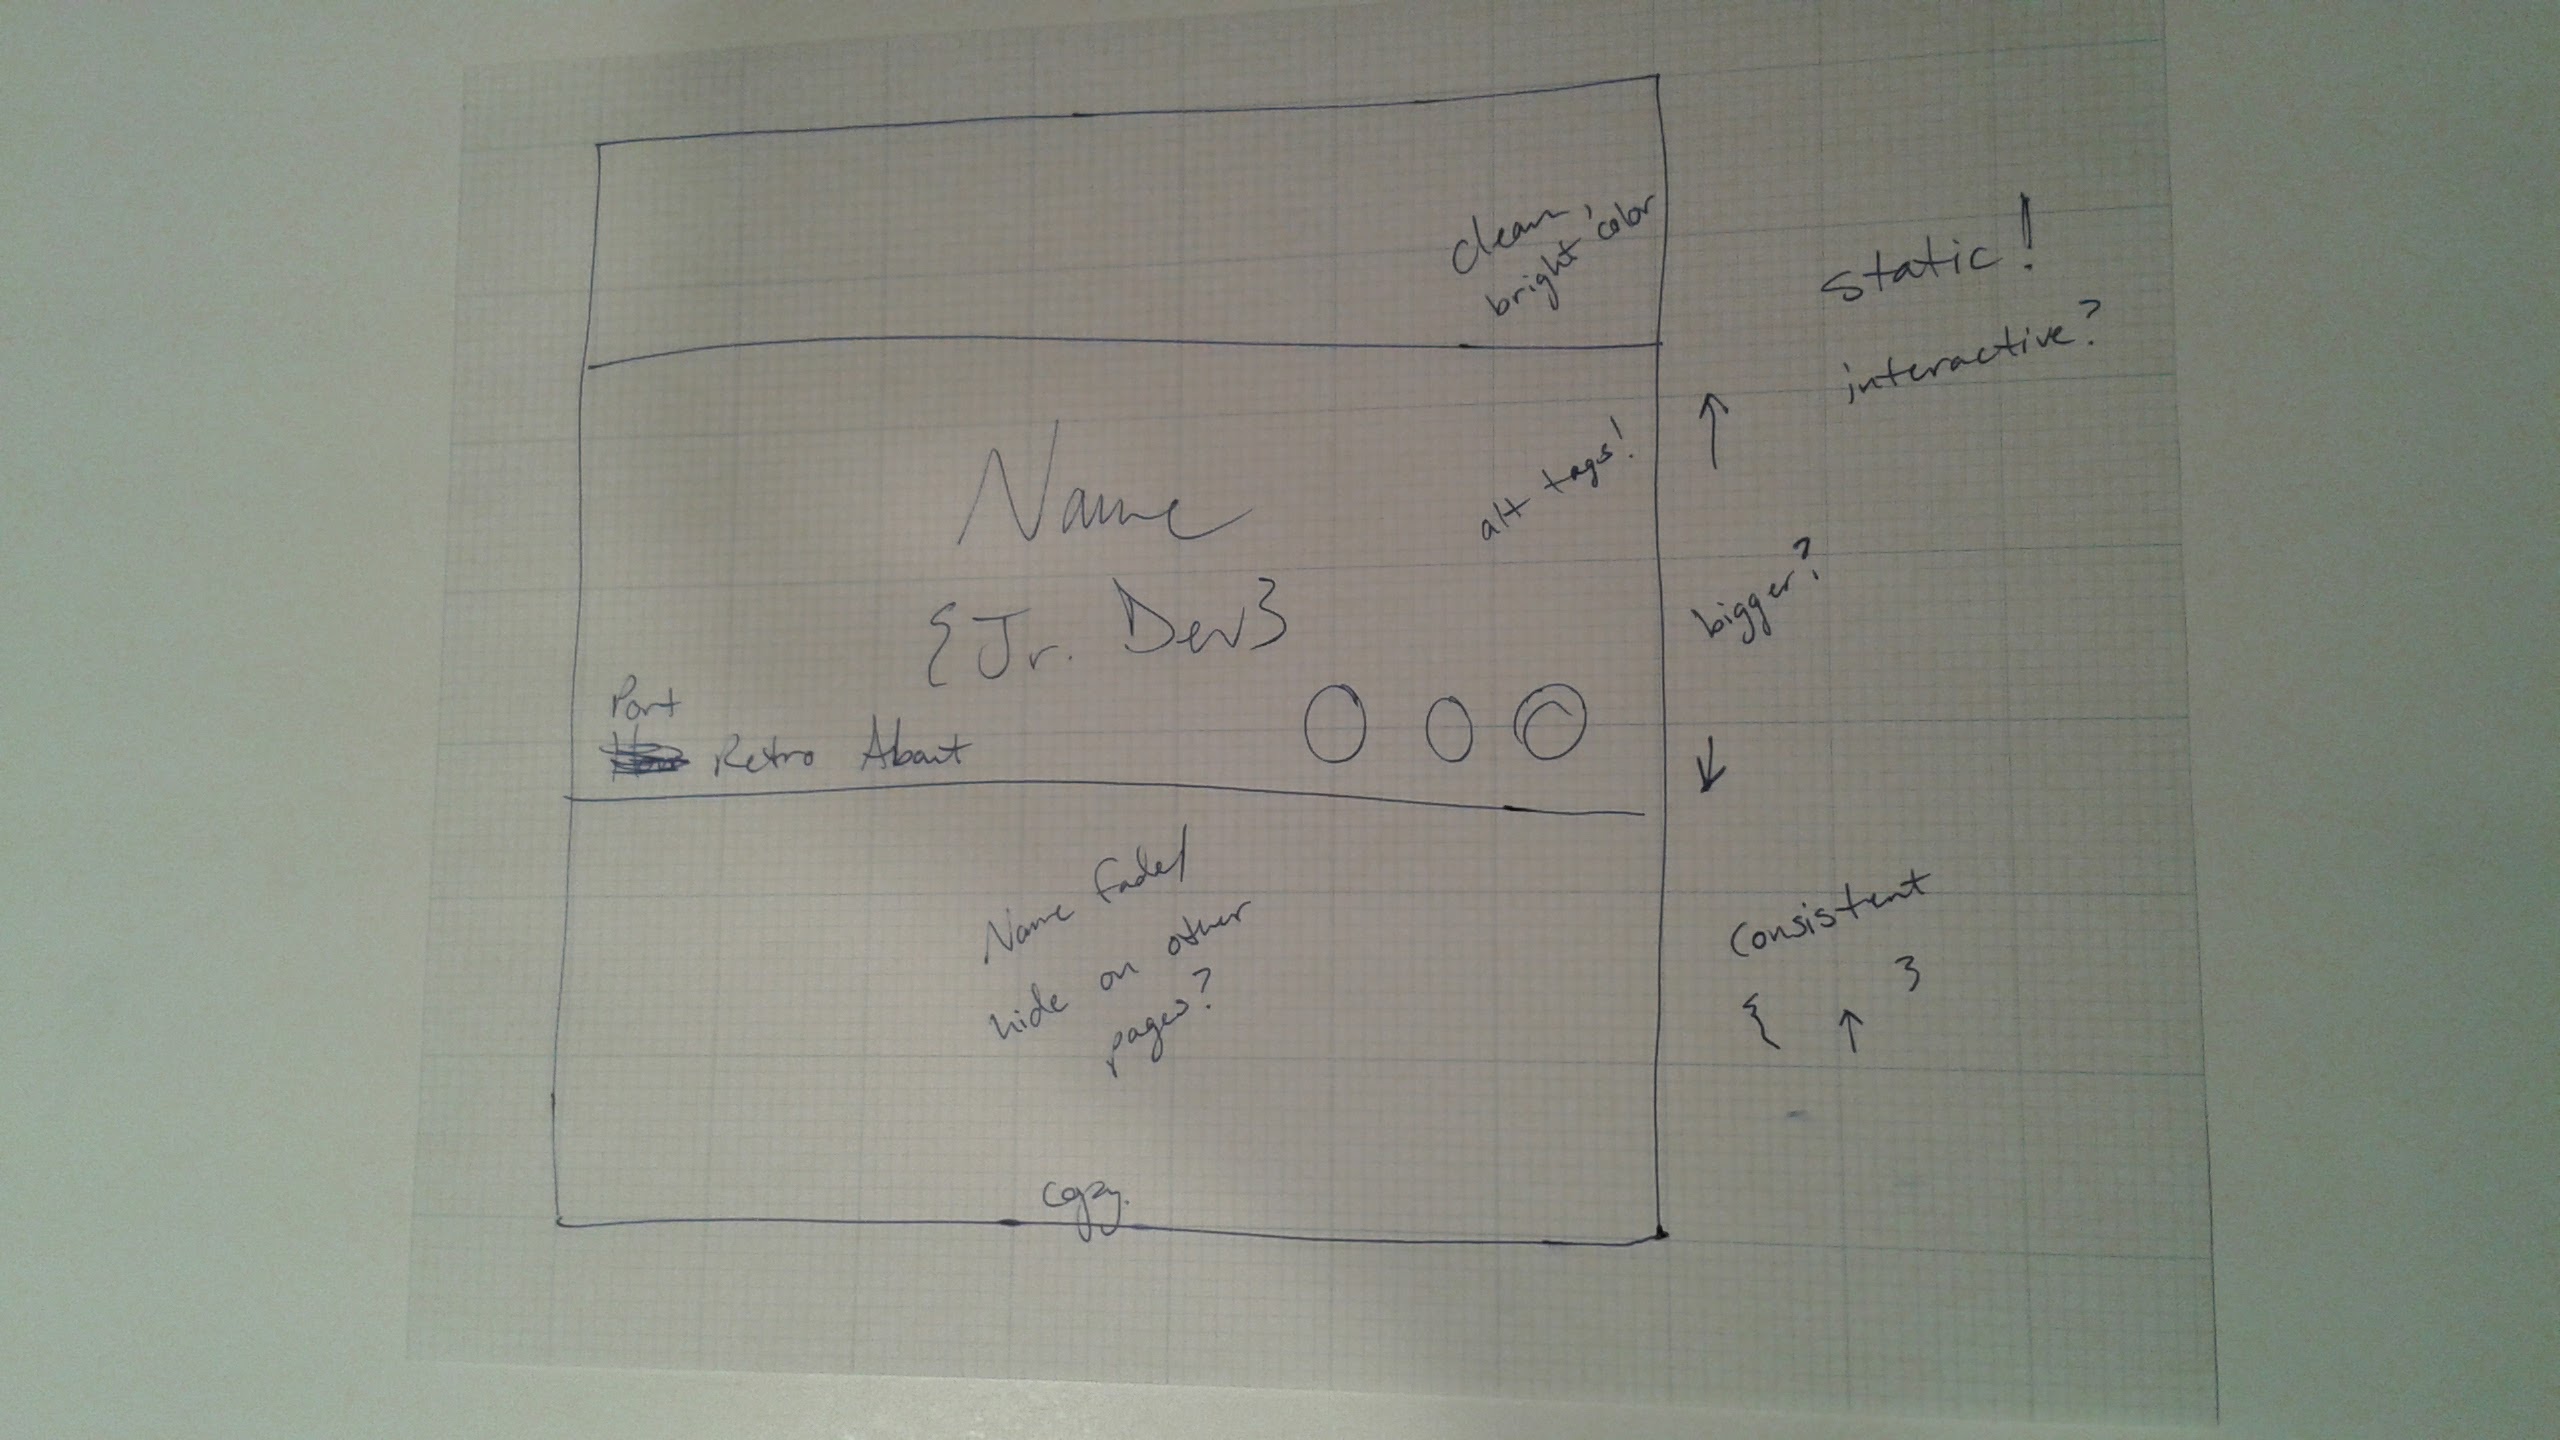 clean,
bright color
static!
interactive?
Name
alt tags!
{Jr. Dev}
bigger?
Port
Retro About
Name fade/
hide on other
pages?
consistent
{ }
copy.